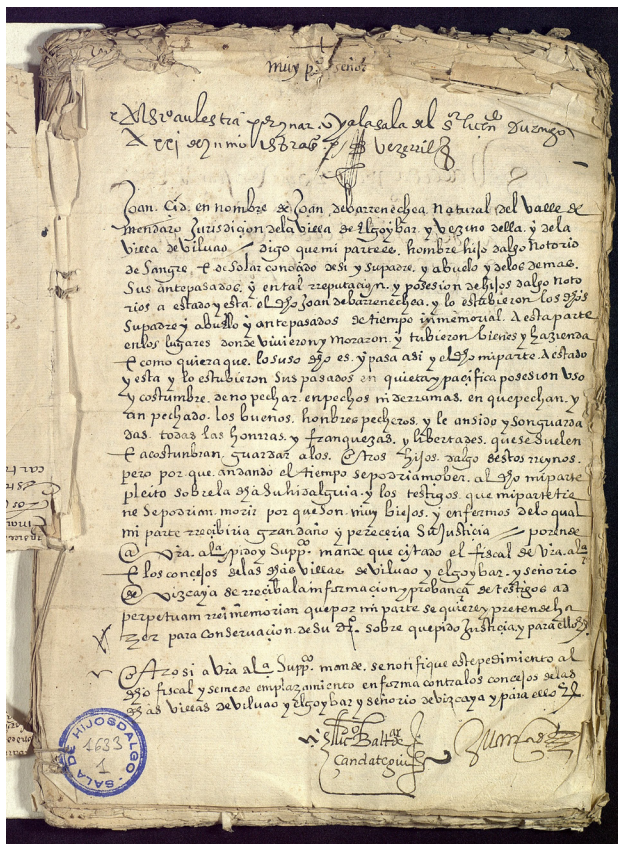 muy pº señor
Joan. Cid. en nombre de Joan debarrenechea. Natural del Valle de
mendaro Jurisdiçion dela Villa de Elgoybar. y vezino della. y dela
Villa de Viluao digo que mi parte es. hombre hijo dalgo Notorio
de Sangre. E de Solar conoçido desi y su padre. y abuelo y delos demas.
Sus antepasados. y en tal rreputaçion. y posesion de hijos dalgo Noto
rios a estado y esta. el dho Joan debarrenechea. y lo estubieron los dhos
Su padre y abuelo y antepasados de tiempo inmemorial. A esta parte
en los lugares donde vivieron y moraron. y tubieron bienes y hazienda
E como quiera que. lo suso dho es. y pasa asi y el dho mi parte. A estado
y esta y lo estubieron Sus pasados en quieta y paçifica posesion Uso
y costumbre. de no pechar. en pechos ni derramas. en que pechan. y
an pechado. los buenos. honbres pecheros. y le an sido y son guarda
das. todas las honrras. y franquezas. y libertades. que se suelen
E acostunbran. guardar a los. Otros hijos. dalgo destos rreynos.
pero por que. andando el tiempo se podria mober. al dho mi parte
pleito sobre la dha Su hidalguia. y los testigos. que mi parte tie
ne se podrian. morir por que son. muy biejos. y enfermos de lo qual
mi parte rreçibiria gran daño y pereçeria Su Justiçia por ende
A Vra. alª pido y Suppcº. mande que çitado el fiscal de Vra. alª
E los conçejos de las dhas villas de Viluao y elgoybar. y señorio
de Vizcaya se rreciba la informaçion y probança de testigos ad
perpetuam rrei memorian que por mi parte se quiere y pretende ha
zer para conserVaçion. de Su drº. sobre que pido Justiçia y para ello
Otro si a Vra alª. Suppcº mande. se notifique este pedimiento al
dho fiscal y se me de emplazamiento en forma contra los conçejos de las
dhas Villas de Viluao y Elgoybar y señorio de vizcaya y para ello
Balt^ar de
Candategui
SALA DE HIJOSDALGO
1633
1